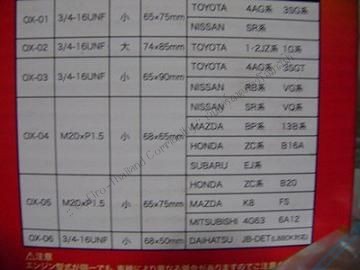 OX-01 3/4-16UNF 小 65×75mm TOYOTA 4AG系 3SG系
NISSAN SR系
OX-02 3/4-16UNF 大 74×85mm TOYOTA 1-2JZ系 1G系
OX-03 3/4-16UNF 小 65×90mm TOYOTA 4AG系 3SGT
NISSAN RB系 VG系
OX-04 M20×P1.5 小 68×65mm NISSAN SR系 VQ系
MAZDA BP系 13B系
HONDA ZC系 B16A
SUBARU EJ系
OX-05 M20×P1.5 小 65×75mm HONDA ZC系 B20
MAZDA K8 FS
MITSUBISHI 4G63 6A12
OX-06 3/4-16UNF 小 68×50mm DAIHATSU JB-DET(L880K対応)
エンジン型式が同一でも、車種により異なる